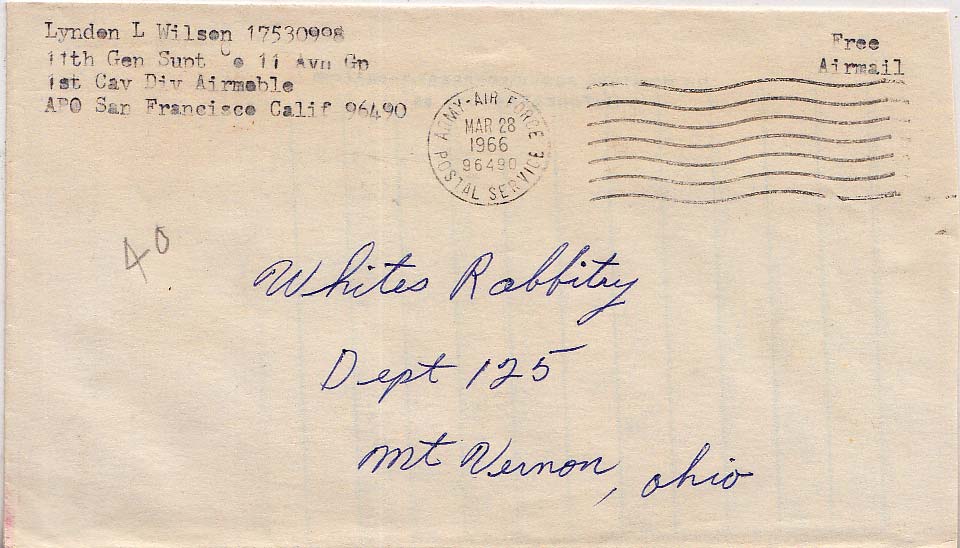 Lynden L Wilson 17530998
11th Gen Supt Co 11 Avn Gp
1st Cav Div Airmoble
APO San Francisco Calif 96490
Free
Airmail
ARMY-AIR FORCE
MAR 28
1966
96490
POSTAL SERVICE
40
Whites Rabbitry
Dept 125
Mt Vernon, Ohio